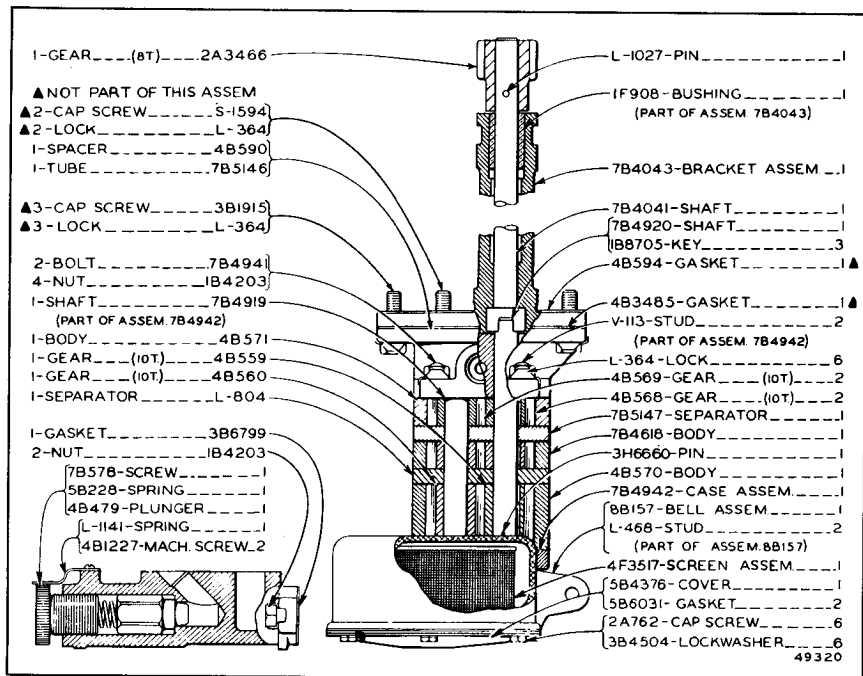 1-GEAR (8T) 2A3466
▲NOT PART OF THIS ASSEM
▲2-CAP SCREW S-1594
▲2-LOCK L-364
1-SPACER 4B590
1-TUBE 7B5146
▲3-CAP SCREW 3B1915
▲3-LOCK L-364
2-BOLT 7B4941
4-NUT 1B4203
1-SHAFT 7B4919
(PART OF ASSEM. 7B4942)
1-BODY 4B571
1-GEAR (10T.) 4B559
1-GEAR (10T.) 4B560
1-SEPARATOR L-804
1-GASKET 3B6799
2-NUT 1B4203
7B578-SCREW 1
5B228-SPRING 1
4B479-PLUNGER 1
L-1141-SPRING 1
4B1227-MACH. SCREW 2
L-1027-PIN 1
1F908-BUSHING 1
(PART OF ASSEM. 7B4043)
7B4043-BRACKET ASSEM 1
7B4041-SHAFT 1
7B4920-SHAFT 1
1B8705-KEY 3
4B594-GASKET 1▲
4B3485-GASKET 1▲
V-113-STUD 2
(PART OF ASSEM. 7B4942)
L-364-LOCK 6
4B569-GEAR (10T.) 2
4B568-GEAR (10T.) 2
7B5147-SEPARATOR 1
7B4618-BODY 1
3H6660-PIN 1
4B570-BODY 1
7B4942-CASE ASSEM 1
8B157-BELL ASSEM 1
L-468-STUD 2
(PART OF ASSEM. 8B157)
4F3517-SCREEN ASSEM. 1
5B4376-COVER 1
5B6031-GASKET 2
2A762-CAP SCREW 6
3B4504-LOCKWASHER 6
49320